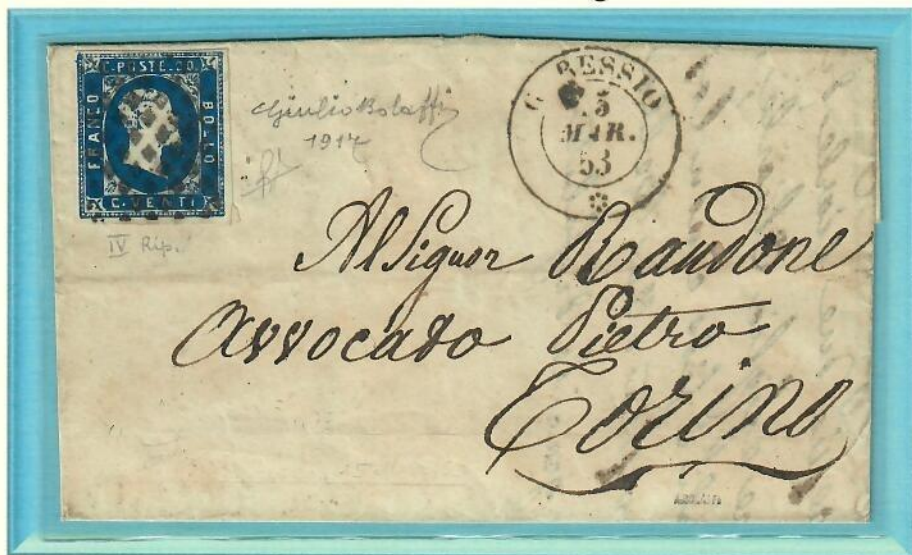 C. POSTE. 20.
FRANCO
BOLLO
C. VENTI
Giulio Bolaffi
1914
IV Rip.
G RESSIO
5
MAR.
53
Al Signor Raudone
Avvocato Pietro
Torino